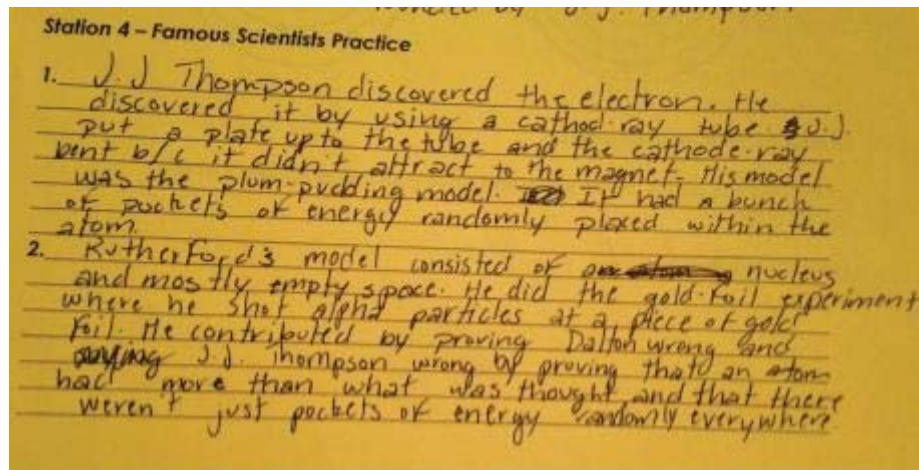 Station 4 – Famous Scientists Practice
1. J.J Thompson discovered the electron. He
discovered it by using a cathod-ray tube. J.J.
put a plate up to the tube and the cathode-ray
bent b/c it didn't attract to the magnet. His model
was the plum-pudding model. It had a bunch
of pockets of energy randomly placed within the
atom.
2. Rutherford's model consisted of nucleus
and mostly empty space. He did the gold-foil experiment
where he shot alpha particles at a piece of gold
foil. He contributed by proving Dalton wrong and
J.J. Thompson wrong by proving that an atom
had more than what was thought and that there
weren't just pockets of energy randomly everywhere